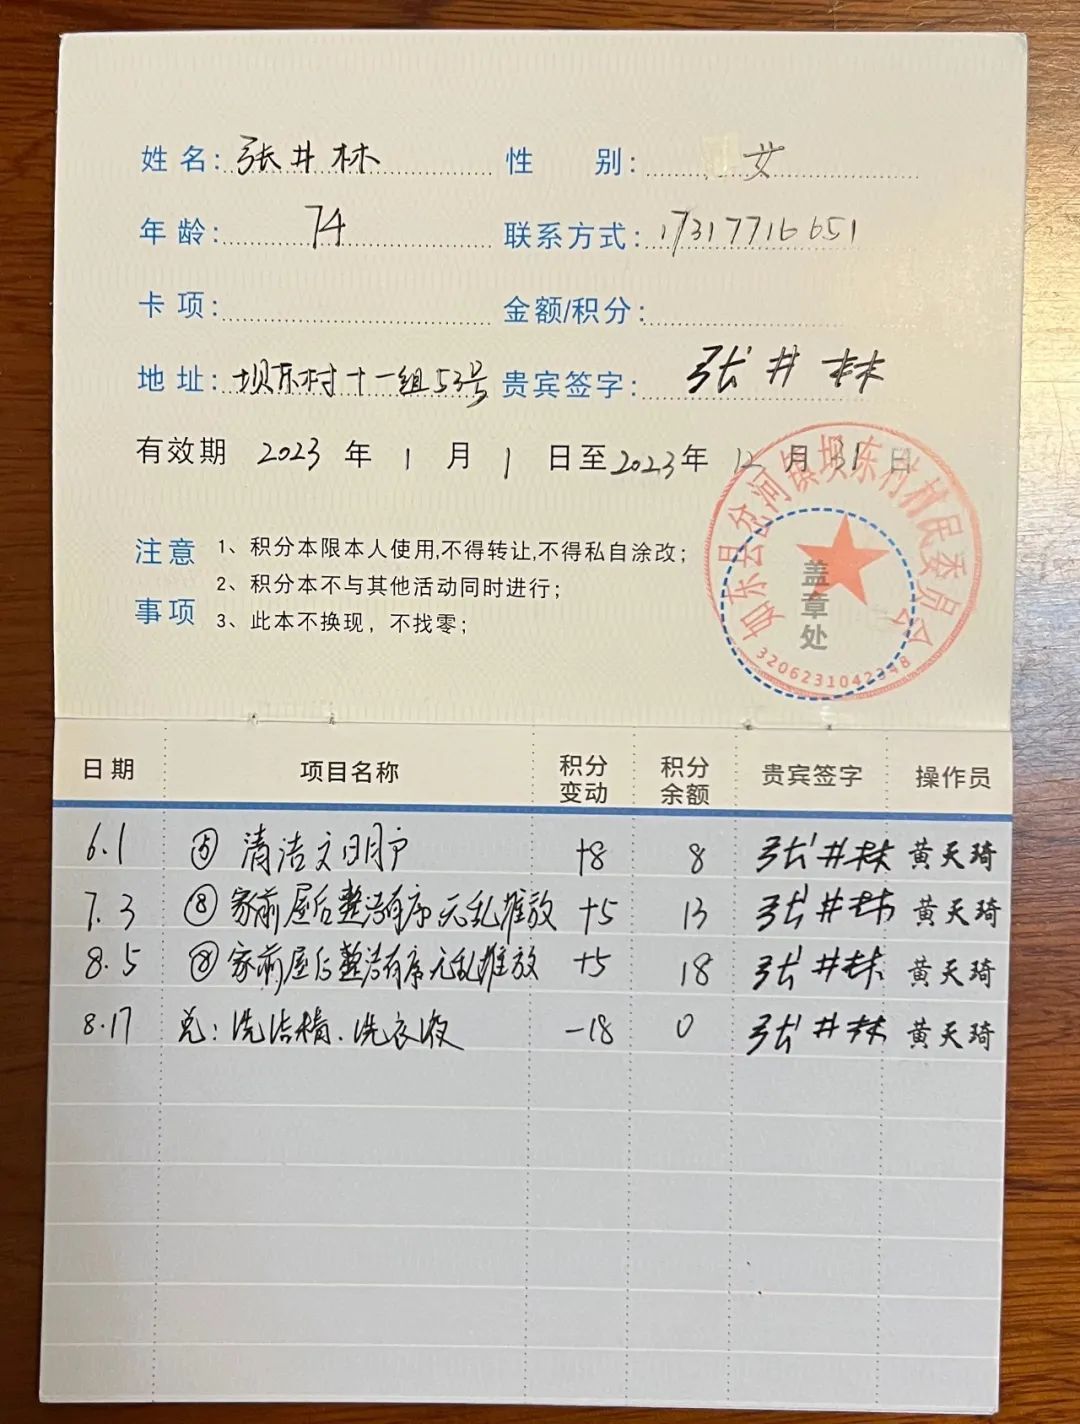 姓名：张井林 性别：女
年龄：74 联系方式：17317716651
卡项： 金额/积分：
地址：坝东村十一组53号 贵宾签字：张井林
有效期 2023年1月1日至2023年12月31日
注意事项
1、积分本限本人使用,不得转让,不得私自涂改;
2、积分本不与其他活动同时进行;
3、此本不换现，不找零;
如东县岔河镇坝东村村民委员会
盖章处
日期 项目名称 积分变动 积分余额 贵宾签字 操作员
6.1 ⑤ 清洁文明户 +8 8 张井林 黄天琦
7.3 ⑧ 家前屋后整洁有序无乱堆放 +5 13 张井林 黄天琦
8.5 ⑧ 家前屋后整洁有序无乱堆放 +5 18 张井林 黄天琦
8.17 兑：洗洁精、洗衣液 -18 0 张井林 黄天琦